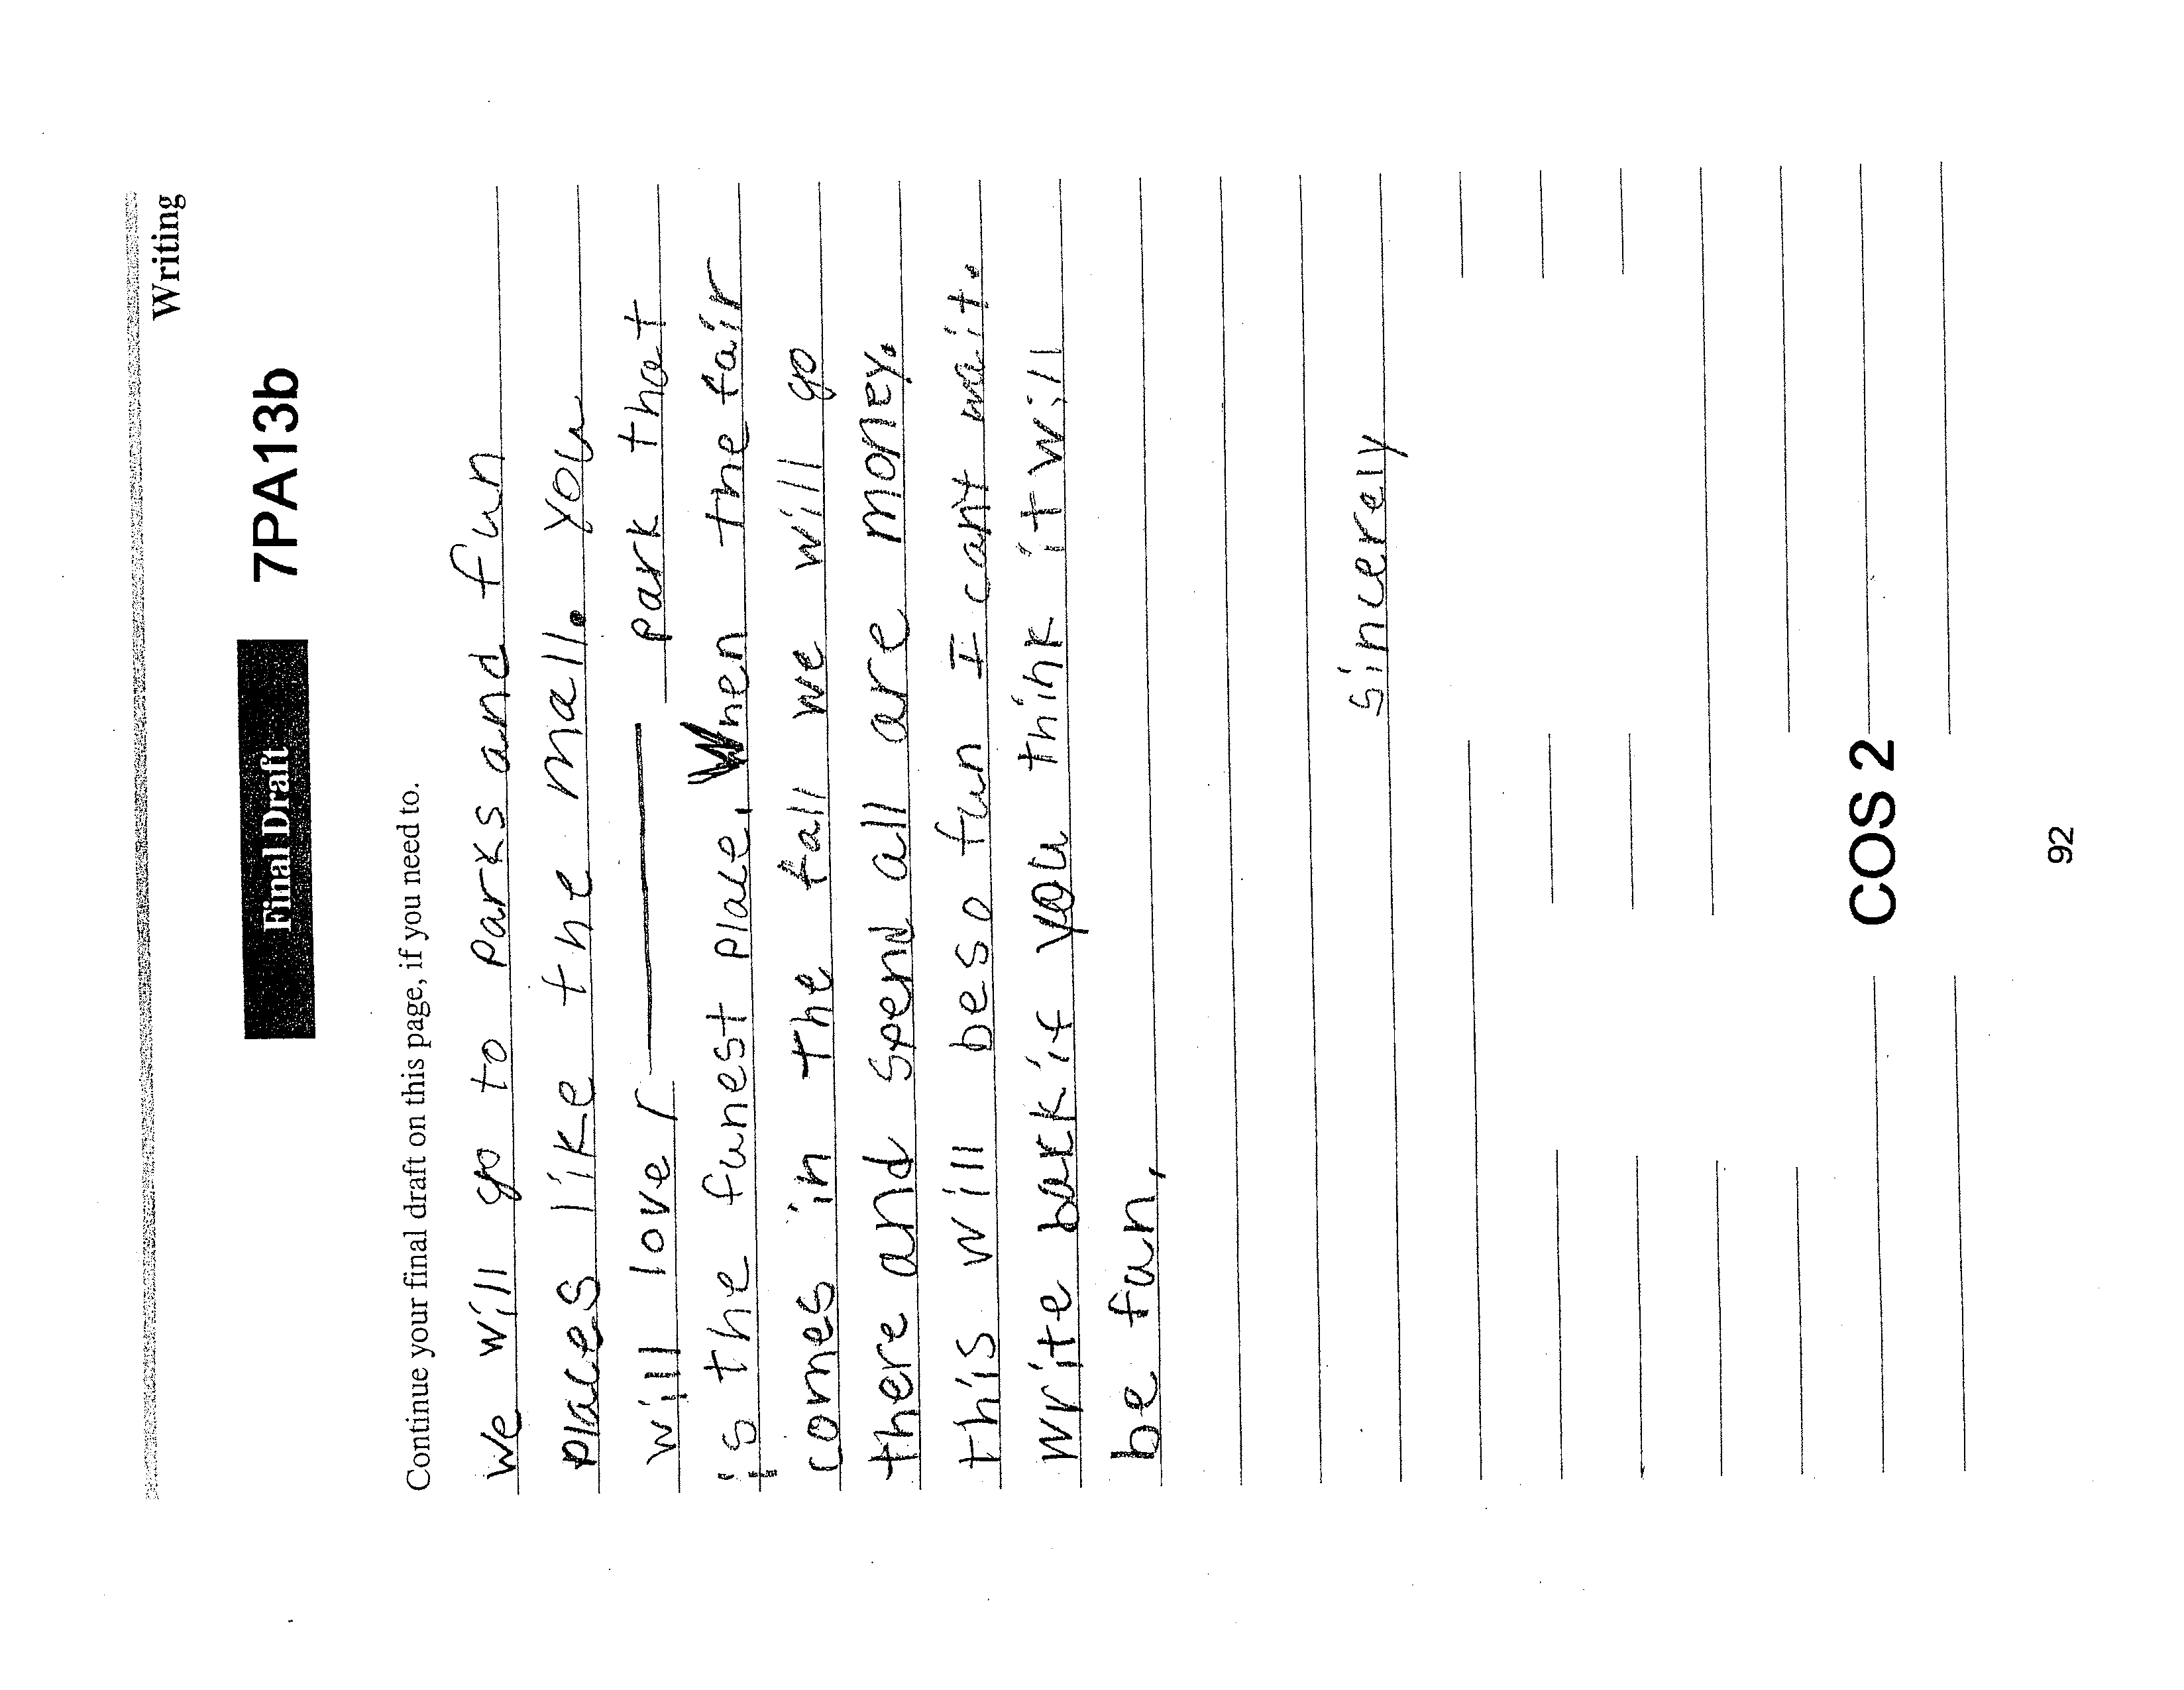 Writing
Final Draft 7PA13b
Continue your final draft on this page, if you need to.
We will go to parks and fun
places like the mall. you
will love park that
is the funest place. When the fair
comes in the fall we will go
there and spend all are money.
this will beso fun I can't wait.
write back if you think it will
be fun,
sincerely
COS 2
92